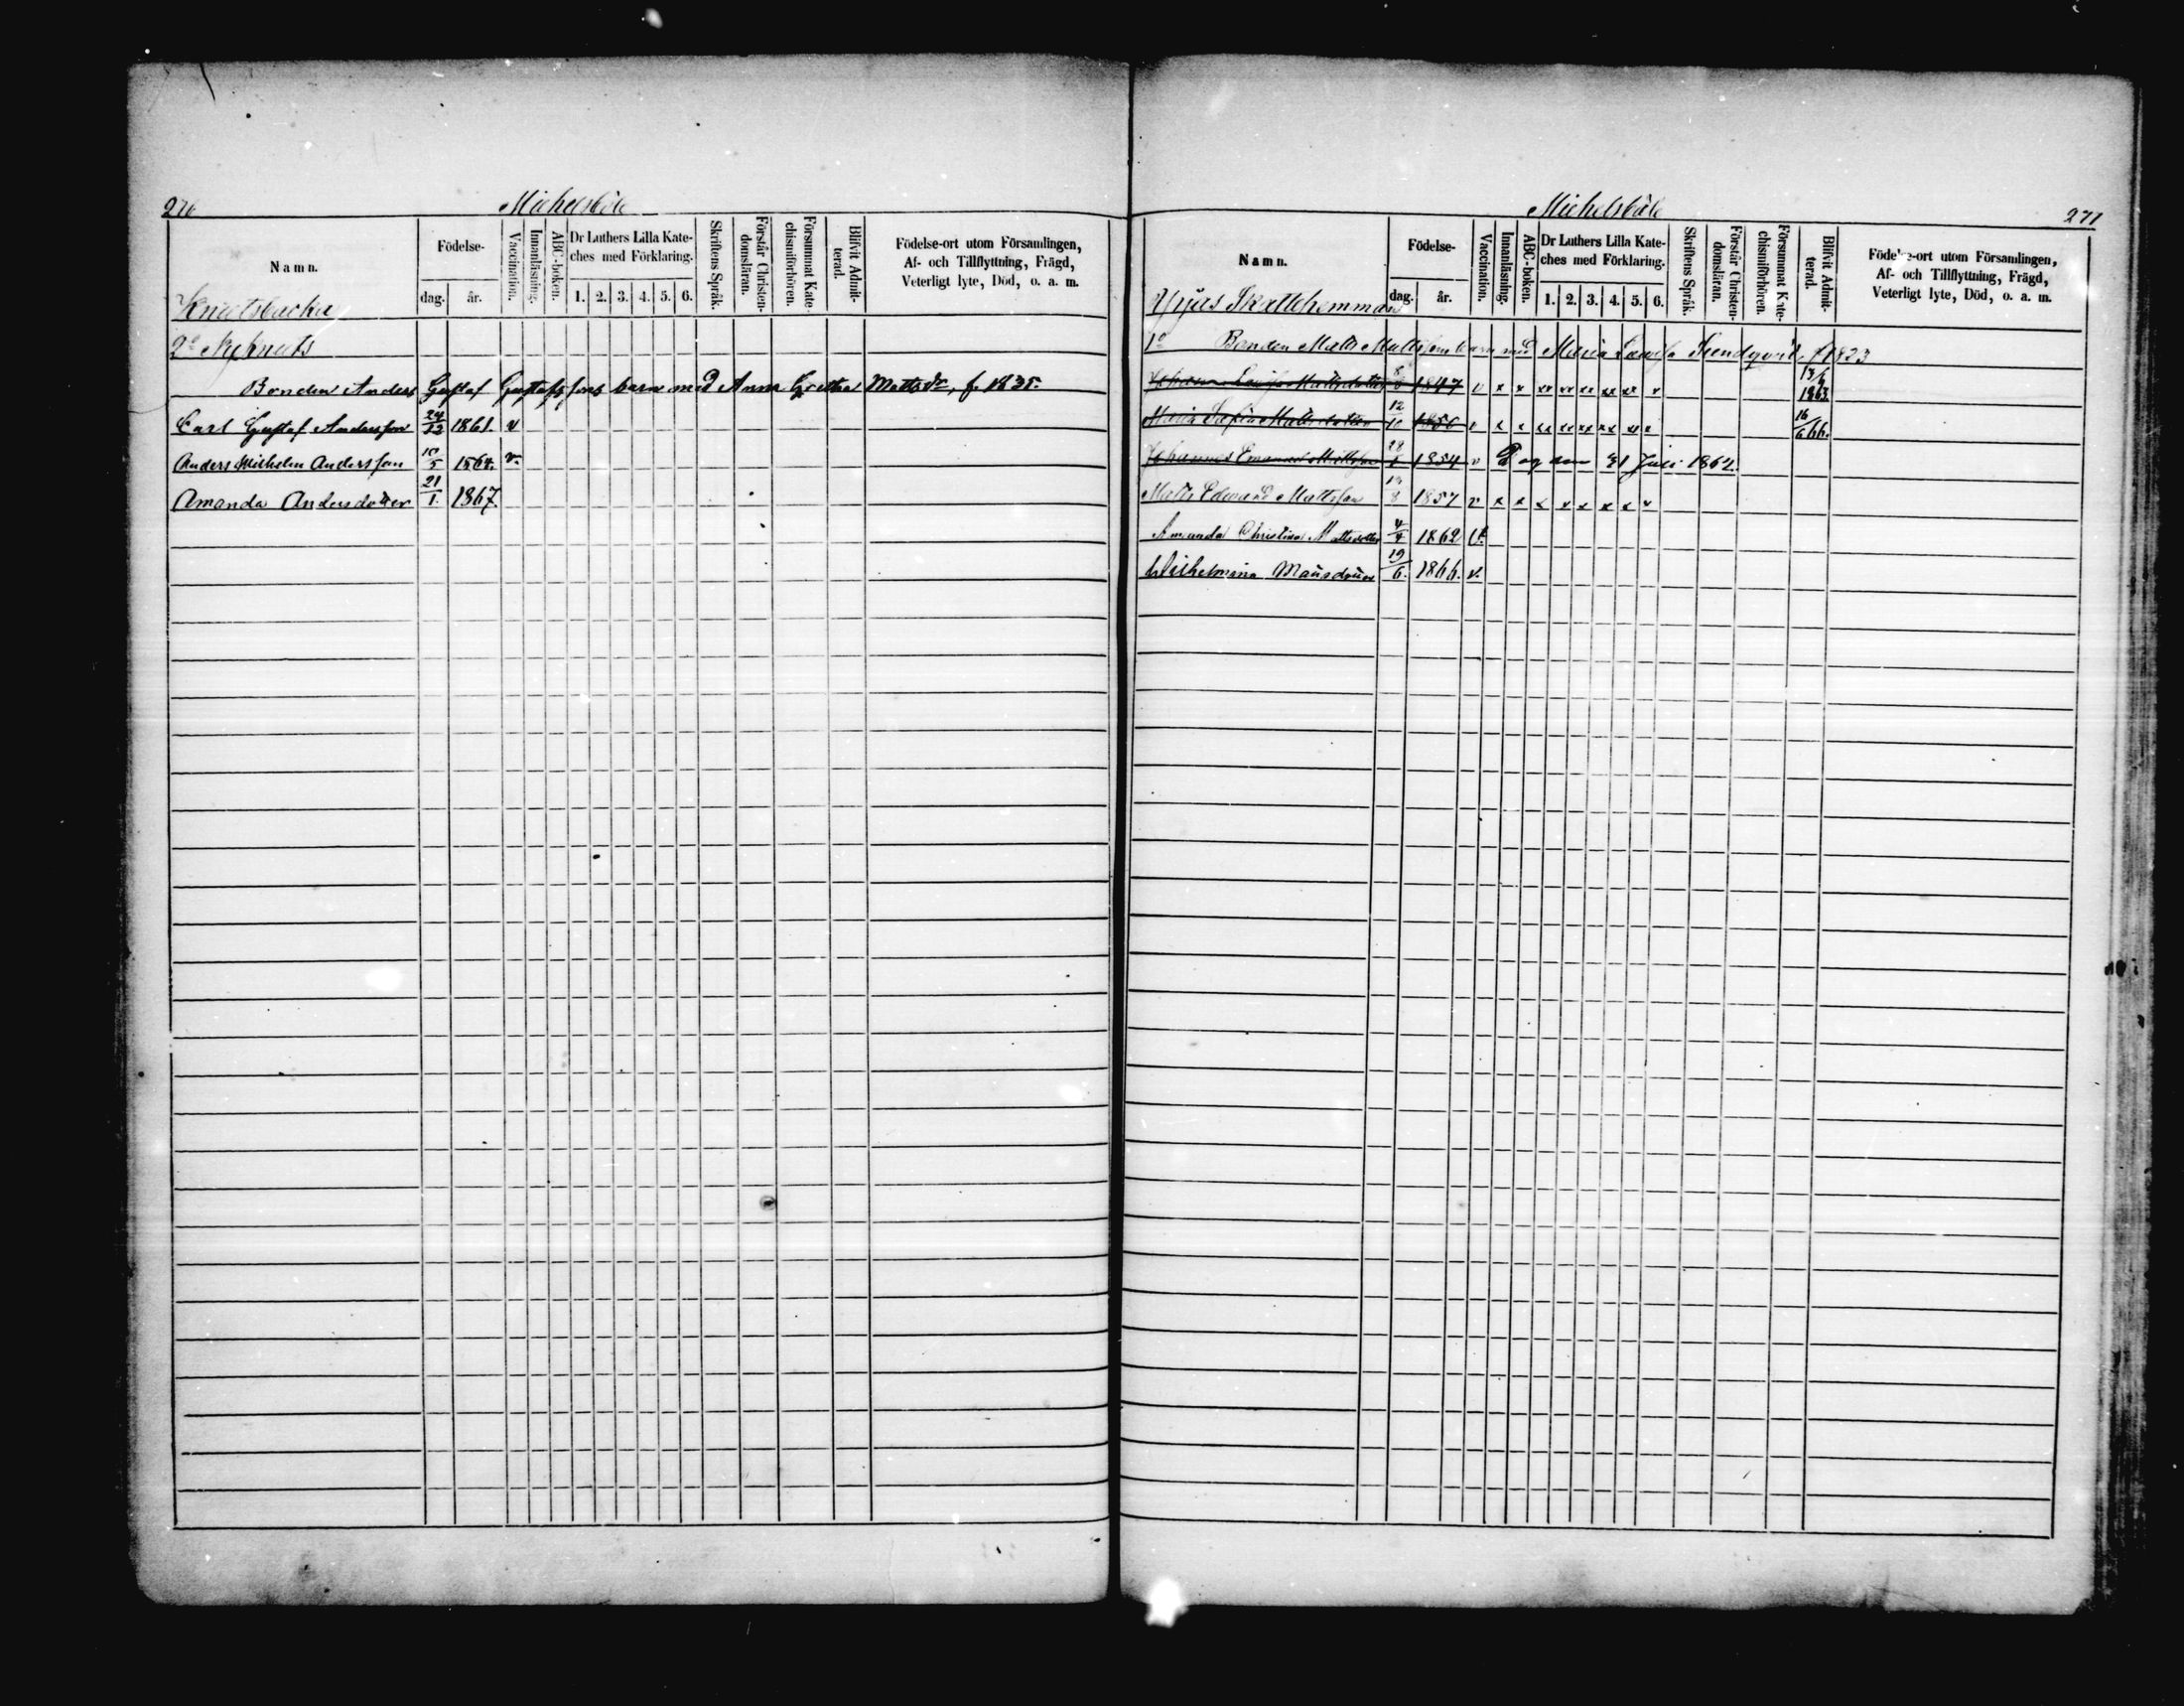 270
Michelsböle
Namn.
Födelse-
dag.
år.
Vaccination.
Innanläsning.
ABC-boken.
Dr Luthers Lilla Kate-
ches med Förklaring.
1. 2. 3. 4. 5. 6.
Skriftens Språk.
Förstår Christen-
domsläran.
Försummat Kate-
chismiförhören.
Blifvit Admit-
terad.
Födelse-ort utom Församlingen,
Af- och Tillflyttning, Frägd,
Veterligt lyte, Död, o. a. m.
Knutsbacka
2o Nyknuts
Bonden Anders Gustaf Gustafssons barn med Anna Gretha Mattsdr, f. 1835.
Carl Gustaf Andersson 24/12 1861. v
Anders Wilhelm Andersson 10/5 1864. v.
Amanda Andersdotter 21/1. 1867.
Michelsböle
271
Namn.
Födelse-
dag.
år.
Vaccination.
Innanläsning.
ABC-boken.
Dr Luthers Lilla Kate-
ches med Förklaring.
1. 2. 3. 4. 5. 6.
Skriftens Språk.
Förstår Christen-
domsläran.
Försummat Kate-
chismiförhören.
Blifvit Admit-
terad.
Födelse-ort utom Församlingen,
Af- och Tillflyttning, Frägd,
Veterligt lyte, Död, o. a. m.
Skattehemman
1o Bonden Matts Mattssons barn med Maria Lovisa Sundqvist, f 1823
Johanna Lovisa Mattsdotter 1847 v x x xx xx xx xx xx v 1863.
Maria Sofia Mattsdotter 12/10 1850 v x x xx xx xx xx xx x 16/6 66.
Johannes Emanuel Mattsson 1854 v Dog den 31 Juli 1862.
Matts Edvard Mattsson 1857 v x x x x x x x v
Amanda Christina Mattsdotter 1862 v.
Wilhelmina Mattsdotter 19/6. 1866. v.